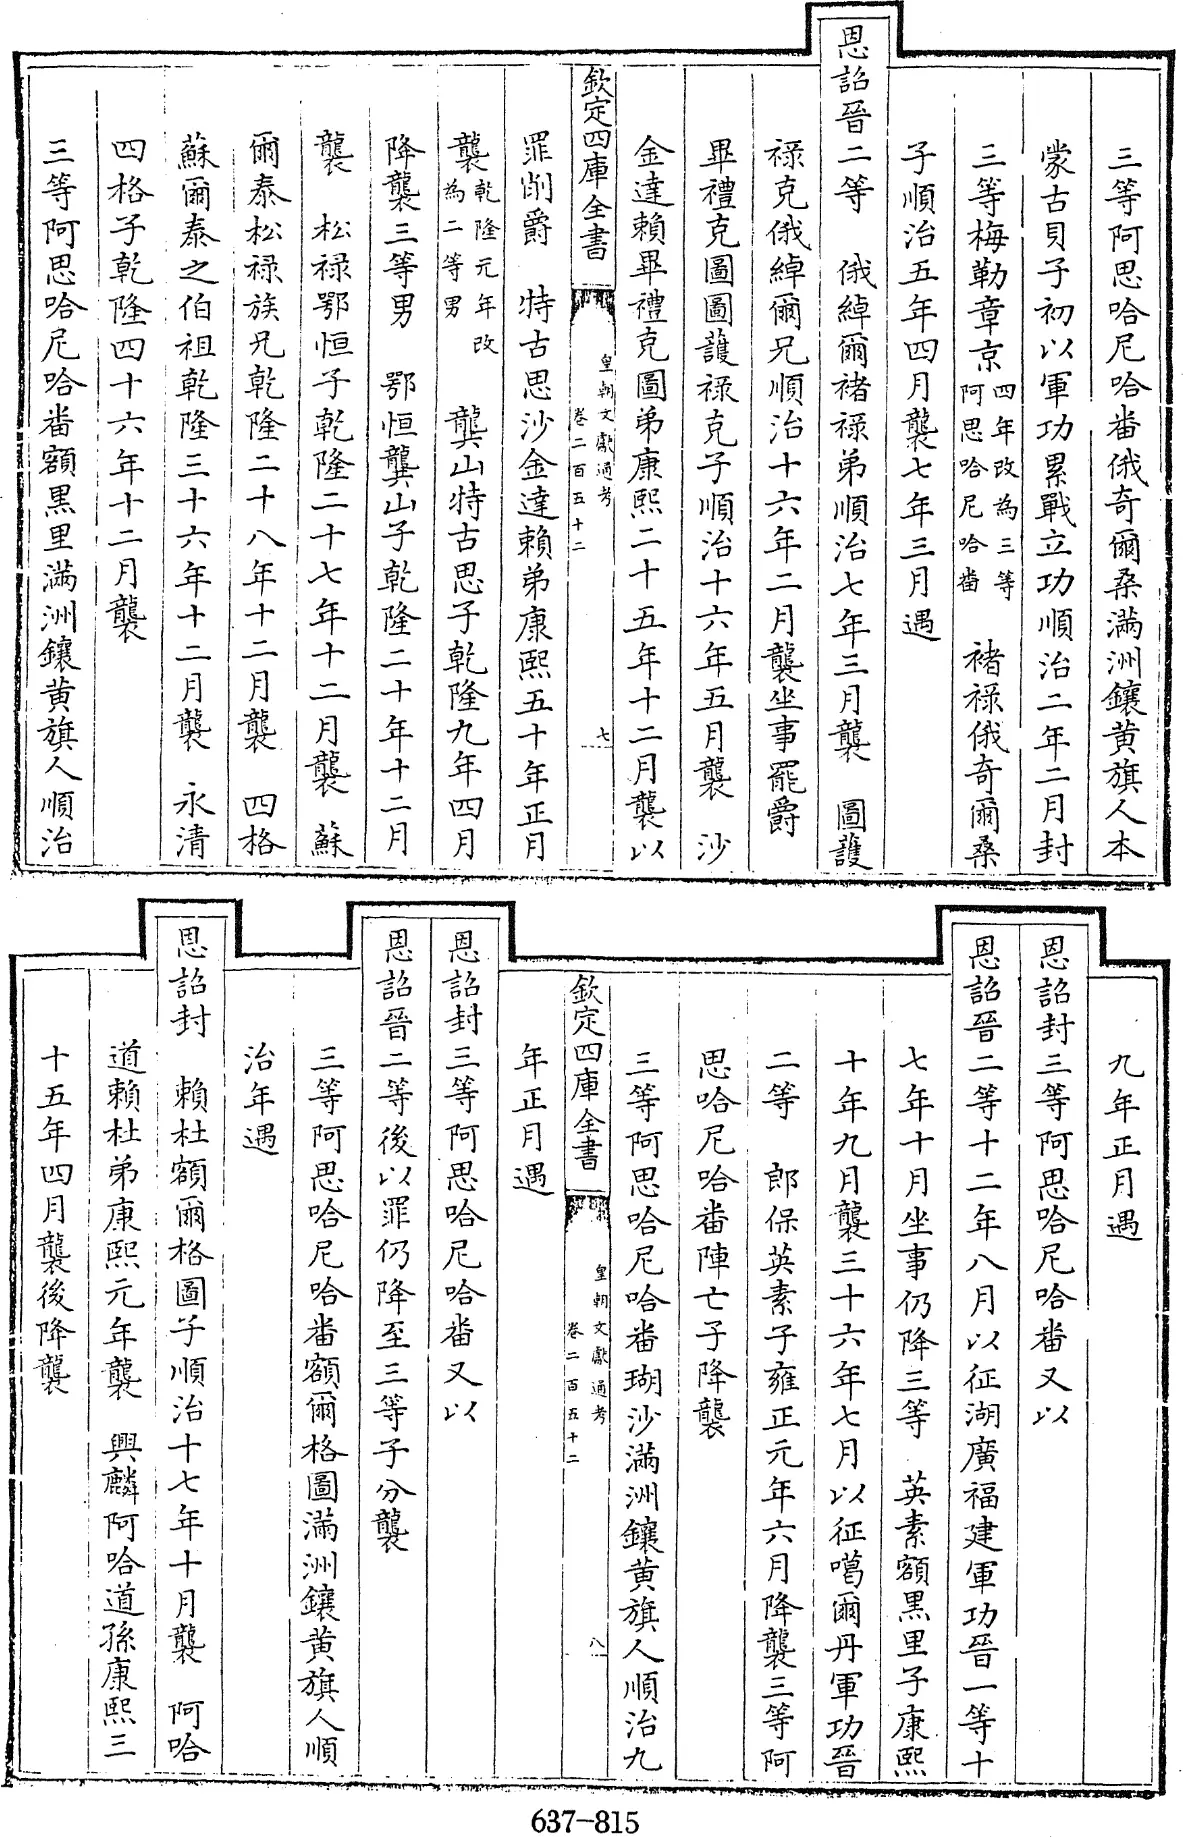 三等阿思哈尼哈番俄奇爾桑滿洲鑲黄旗人本
蒙古貝子初以軍功累戰立功順治二年二月封
三等梅勒章京四年改為三等阿思哈尼哈番　褚祿俄奇爾桑
子順治五年四月襲七年三月遇
恩詔晉二等　俄綽爾褚祿弟順治七年三月襲　圖護
祿克俄綽爾兄順治十六年二月襲坐事罷爵
畢禮克圖圖護祿克子順治十六年五月襲　沙
金達賴畢禮克圖弟康熙二十五年十二月襲以
欽定四庫全書　皇朝文獻通考卷二百五十二　七
罪削爵　特古思沙金達賴弟康熙五十年正月
襲乾隆元年改為二等男　龔山特古思子乾隆九年四月
降襲三等男　鄂恒龔山子乾隆二十年十二月
襲　松祿鄂恒子乾隆二十七年十二月襲　蘇
爾泰松祿族兄乾隆二十八年十二月襲　四格
蘇爾泰之伯祖乾隆三十六年十二月襲　永清
四格子乾隆四十六年十二月襲
三等阿思哈尼哈番額黒里滿洲鑲黄旗人順治
九年正月遇
恩詔封三等阿思哈尼哈番又以
恩詔晉二等十二年八月以征湖廣福建軍功晉一等十
七年十月坐事仍降三等　英素額黒里子康熙
十年九月襲三十六年七月以征噶爾丹軍功晉
二等　郎保英素子雍正元年六月降襲三等阿
思哈尼哈番陣亡子降襲
三等阿思哈尼哈番瑚沙滿洲鑲黄旗人順治九
欽定四庫全書　皇朝文獻通考卷二百五十二　八
年正月遇
恩詔封三等阿思哈尼哈番又以
恩詔晉二等後以罪仍降至三等子分襲
三等阿思哈尼哈番額爾格圖滿洲鑲黄旗人順
治年遇
恩詔封　賴杜額爾格圖子順治十七年十月襲　阿哈
道賴杜弟康熙元年襲　興麟阿哈道孫康熙三
十五年四月襲後降襲
637-815